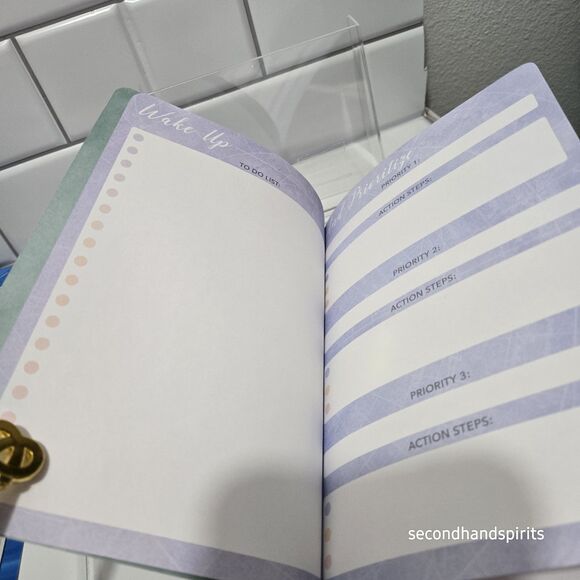 Wake Up
TO DO LIST:
Prioritize
PRIORITY 1:
ACTION STEPS:
PRIORITY 2:
ACTION STEPS:
PRIORITY 3:
ACTION STEPS:
secondhandspirits